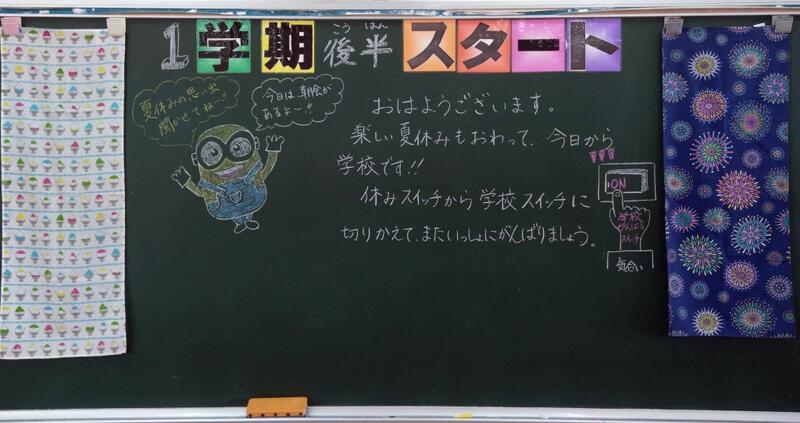 1学期後半スタート
こう はん
夏休みの思い出
聞かせてね〜!
今日は朝会が
あるよ〜!!
おはようございます。
楽しい夏休みもおわって、今日から
学校です!!
休みスイッチから学校スイッチに
切りかえて、またいっしょにがんばりましょう。
ON
学校
がんばる
スイッチ
気合い